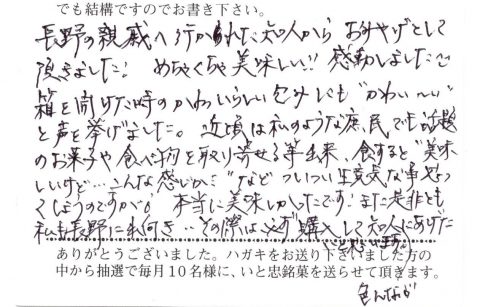 でも結構ですのでお書き下さい。
長野の親戚へ行かれた知人から お みやげとして
頂きました! めちゃくちゃ美味しい!! 感動しました
箱を開けた時のかわいらしい包みにも“かわい〜い”
と声を挙げました。近頃は私のような庶民でも話題
のお菓子や食べ物を取り寄せる事出来、食すると“美味
いいけど…こんな感じか…”などついつい生意気な事を言っ
てしまうのですが 本当に美味しかったです! また是非とも
私も長野に出向き…その際は必ず購入して知人にあげた
いと思います。
ありがとうございました。ハガキをお送り下さいました方の
中から抽選で毎月10名様に、いと忠銘菓を送らせて頂きます。